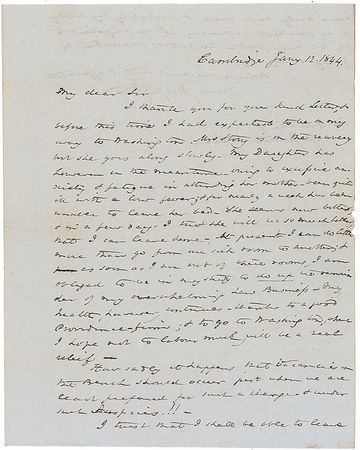 Cambridge Jany 12. 1844.
My dear Sir
I thank you for your kind Letter, &
before this time I had expected to be on my
way to Washington. Mrs Story is on the recovery
but she goes along slowly. My Daughter has
however in the meantime owing to excessive anx
iety & fatigue in attending her mother been quite
ill with a low fever, & for nearly a week has been
unable to leave her bed. She seems now better
& in a few days I trust she will be so much better
that I can leave home. At present I can do little
more than go from one sick room to another; &
as soon as I am out of their rooms I am
obliged to be in my study to do up the remain
der of my overwhelming Law Business. My
health, however, continues thanks to a good
Providence firm; & to go to Washington, where
I hope not to labour much will be a real
relief. —
How sadly it happens that Vacancies on
the Bench should occur just when we are
least prepared for such a change & under
such auspices!!! —
I trust that I shall be able to leave